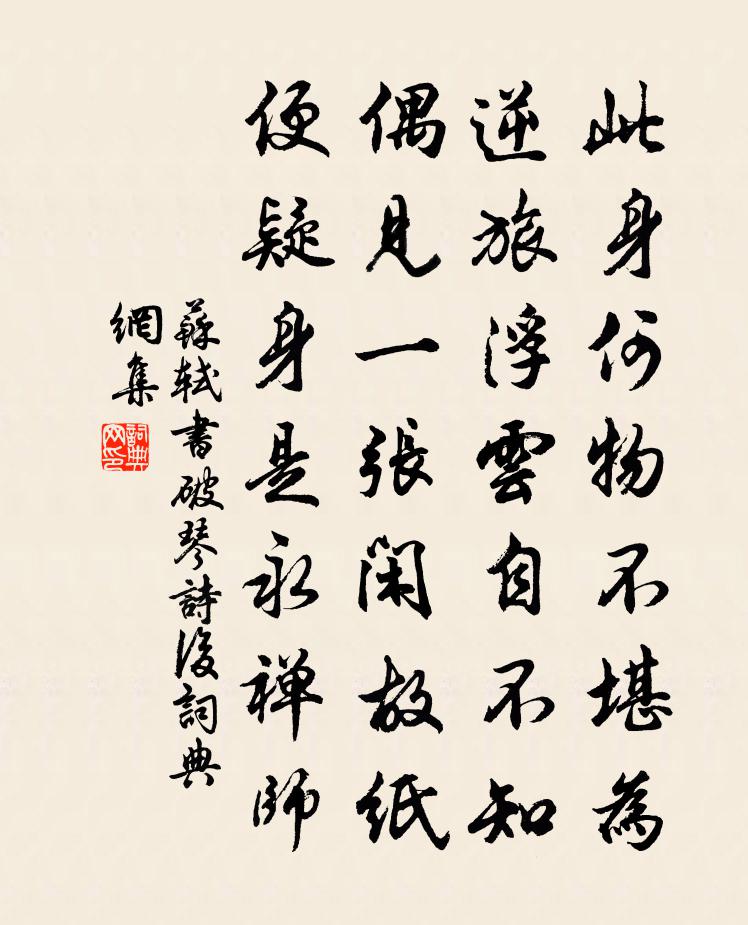 此身何物不堪為
逆旅浮雲自不知
偶見一張閑故紙
便疑身是永禅師
蘇軾書破琴詩後詞典
網集
詞典
网印